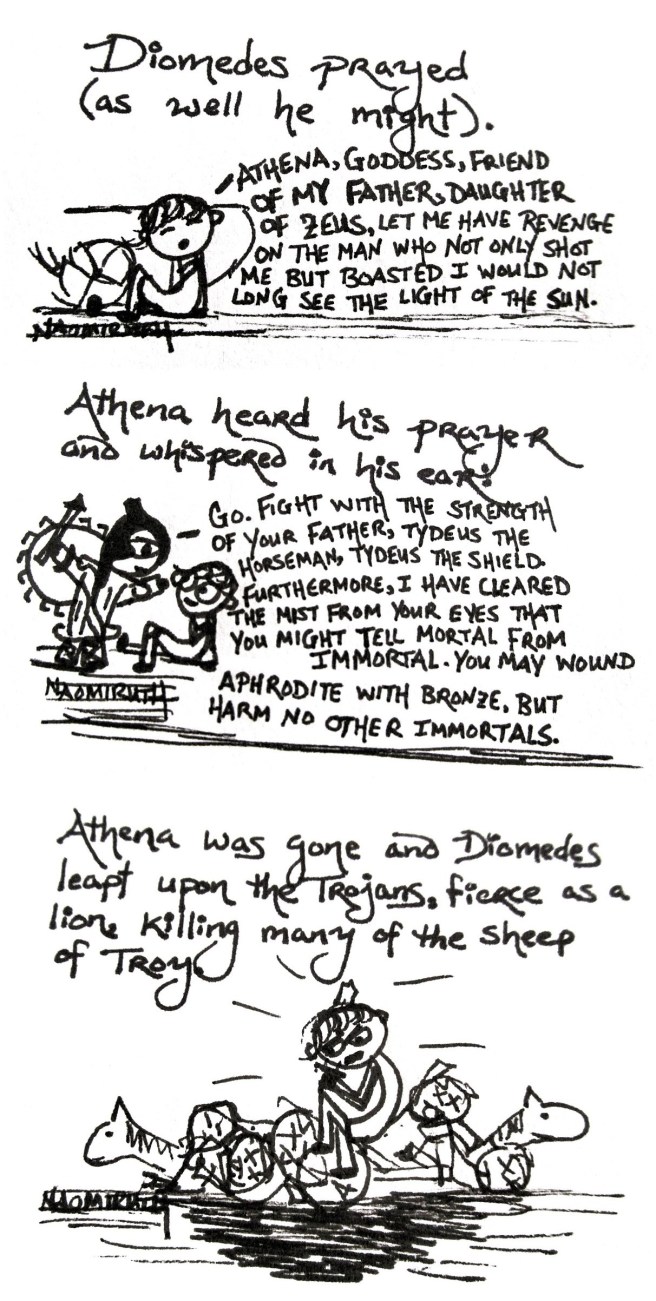 Diomedes prayed
(as well he might).
ATHENA, GODDESS, FRIEND
OF MY FATHER, DAUGHTER
OF ZEUS, LET ME HAVE REVENGE
ON THE MAN WHO NOT ONLY SHOT
ME BUT BOASTED I WOULD NOT
LONG SEE THE LIGHT OF THE SUN.
NAOMIRUTH
Athena heard his prayer
and whispered in his ear:
GO. FIGHT WITH THE STRENGTH
OF YOUR FATHER, TYDEUS THE
HORSEMAN, TYDEUS THE SHIELD.
FURTHERMORE, I HAVE CLEARED
THE MIST FROM YOUR EYES THAT
YOU MIGHT TELL MORTAL FROM
IMMORTAL. YOU MAY WOUND
APHRODITE WITH BRONZE, BUT
HARM NO OTHER IMMORTALS.
NAOMIRUTH
Athena was gone and Diomedes
leapt upon the Trojans, fierce as a
lion, killing many of the sheep
of Troy.
NAOMIRUTH